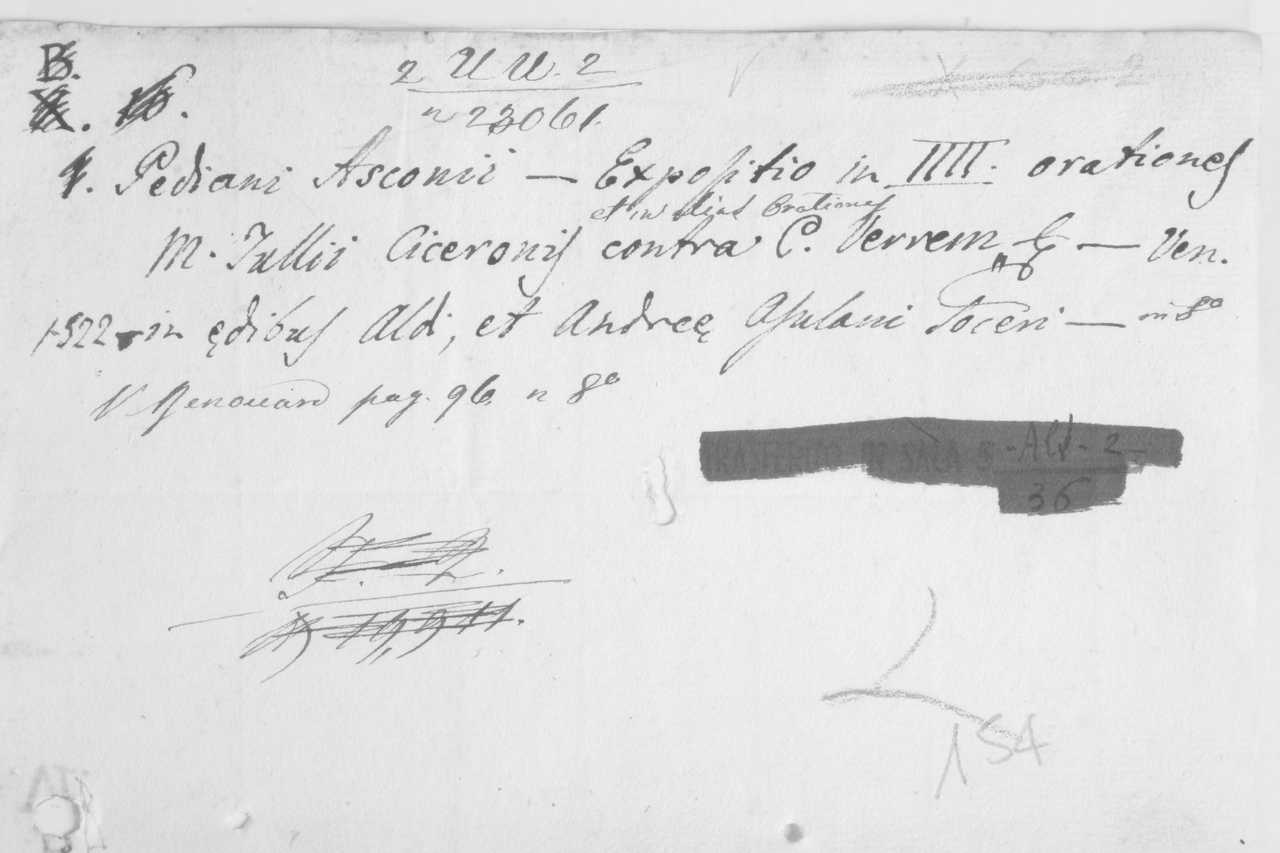 B.
2 U U. 2
n 23061.
Pediani Asconii — Expositio in IIII. orationes
et in alias Orationes
M. Tullii Ciceronis contra C. Verrem — Ven.
1522 in ędibus Aldi, et Andreę Asulani Soceri — in 8º
V Renouard pag. 96 n 8º
TRASFERITO IN SALA 5 - Ald - 2
36
154